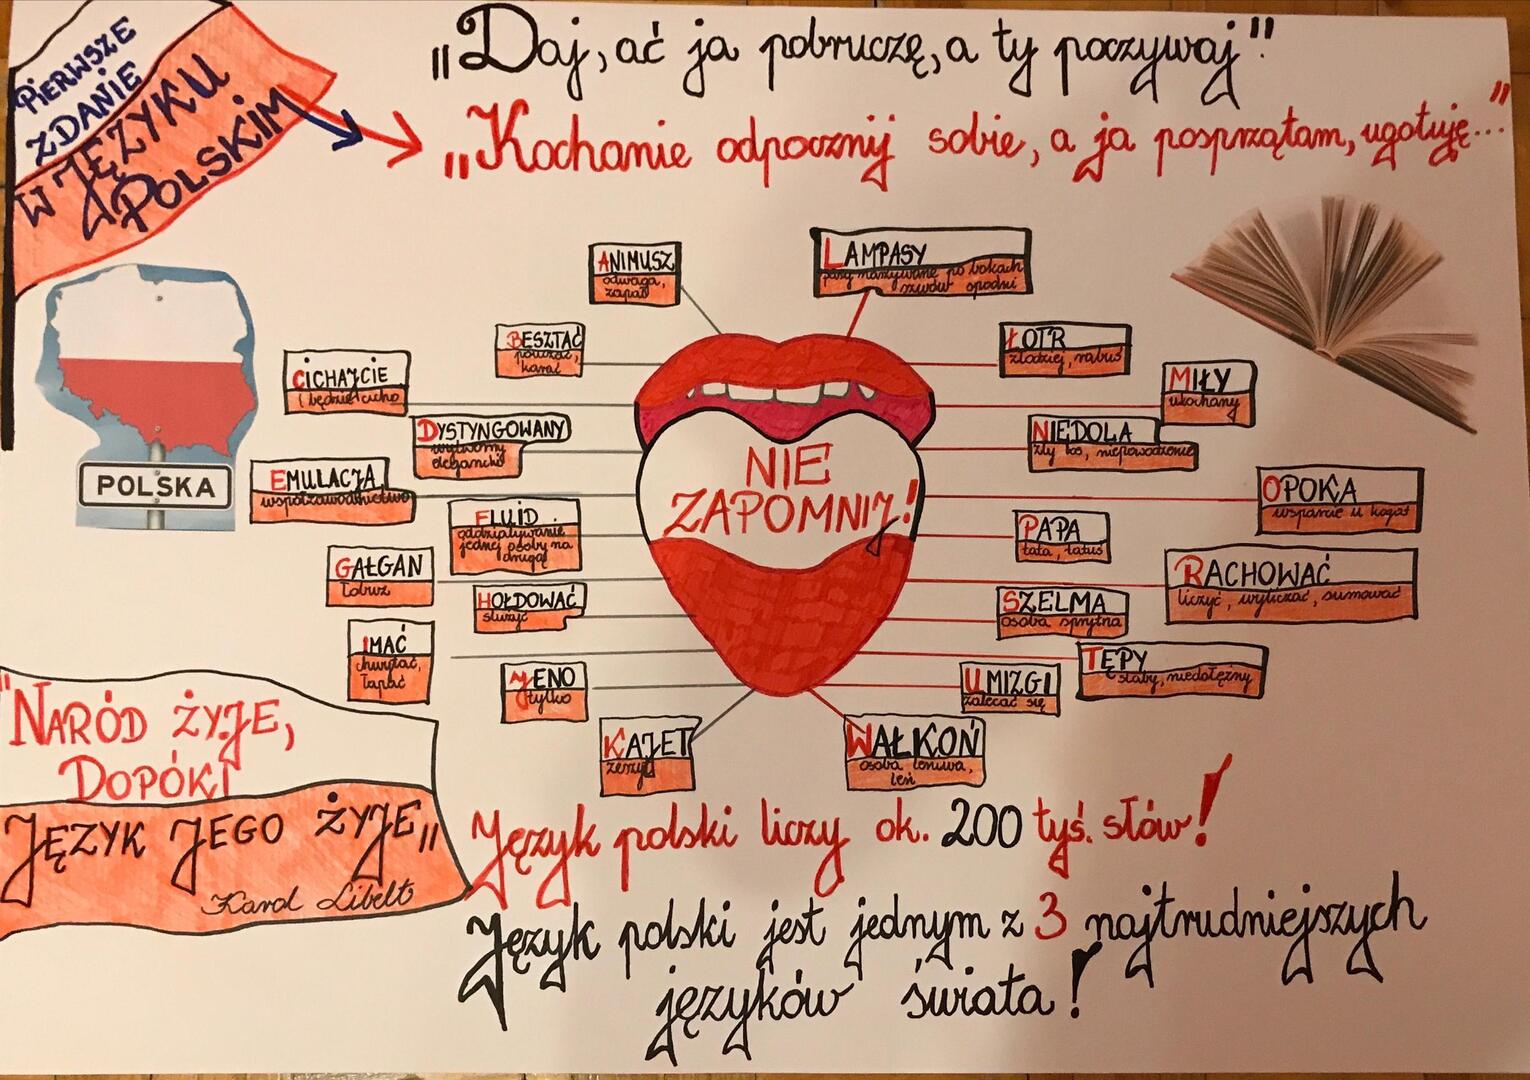 PIERWSZE
ZDANIE
W JĘZYKU
POLSKIM
„Daj, ać ja pobruczę, a ty poczywaj"!
„Kochanie odpocznij sobie, a ja posprzątam, ugotuję..."
ANIMUSZ
odwaga,
zapał
LAMPASY
pasy naszywane po bokach
szwów spodni
BESZTAĆ
pouczać,
karać
ŁOTR
złodziej, rabuś
CICHAJCIE
i bądźcie cicho
MIŁY
ukochany
DYSTYNGOWANY
wytworny
elegancki
NIEDOLA
zły los, niepowodzenie
EMULACJA
współzawodnictwo
OPOKA
wsparcie u kogoś
FLUID
oddziaływanie
jednej osoby na
drugą
PAPA
tata, tatuś
GAŁGAN
łobuz
RACHOWAĆ
liczyć, wyliczać, sumować
HOŁDOWAĆ
służyć
SZELMA
osoba sprytna
IMAĆ
chwytać,
łapać
TĘPY
słaby, niedołężny
JENO
tylko
UMIZGI
zalecać się
KAJET
zeszyt
WAŁKOŃ
osoba leniwa,
leń
NIE
ZAPOMNIJ!
POLSKA
"NARÓD ŻYJE,
DOPÓKI
JĘZYK JEGO ŻYJE„
Karol Libelt
Język polski liczy ok. 200 tyś. słów!
Język polski jest jednym z 3 najtrudniejszych
języków świata!